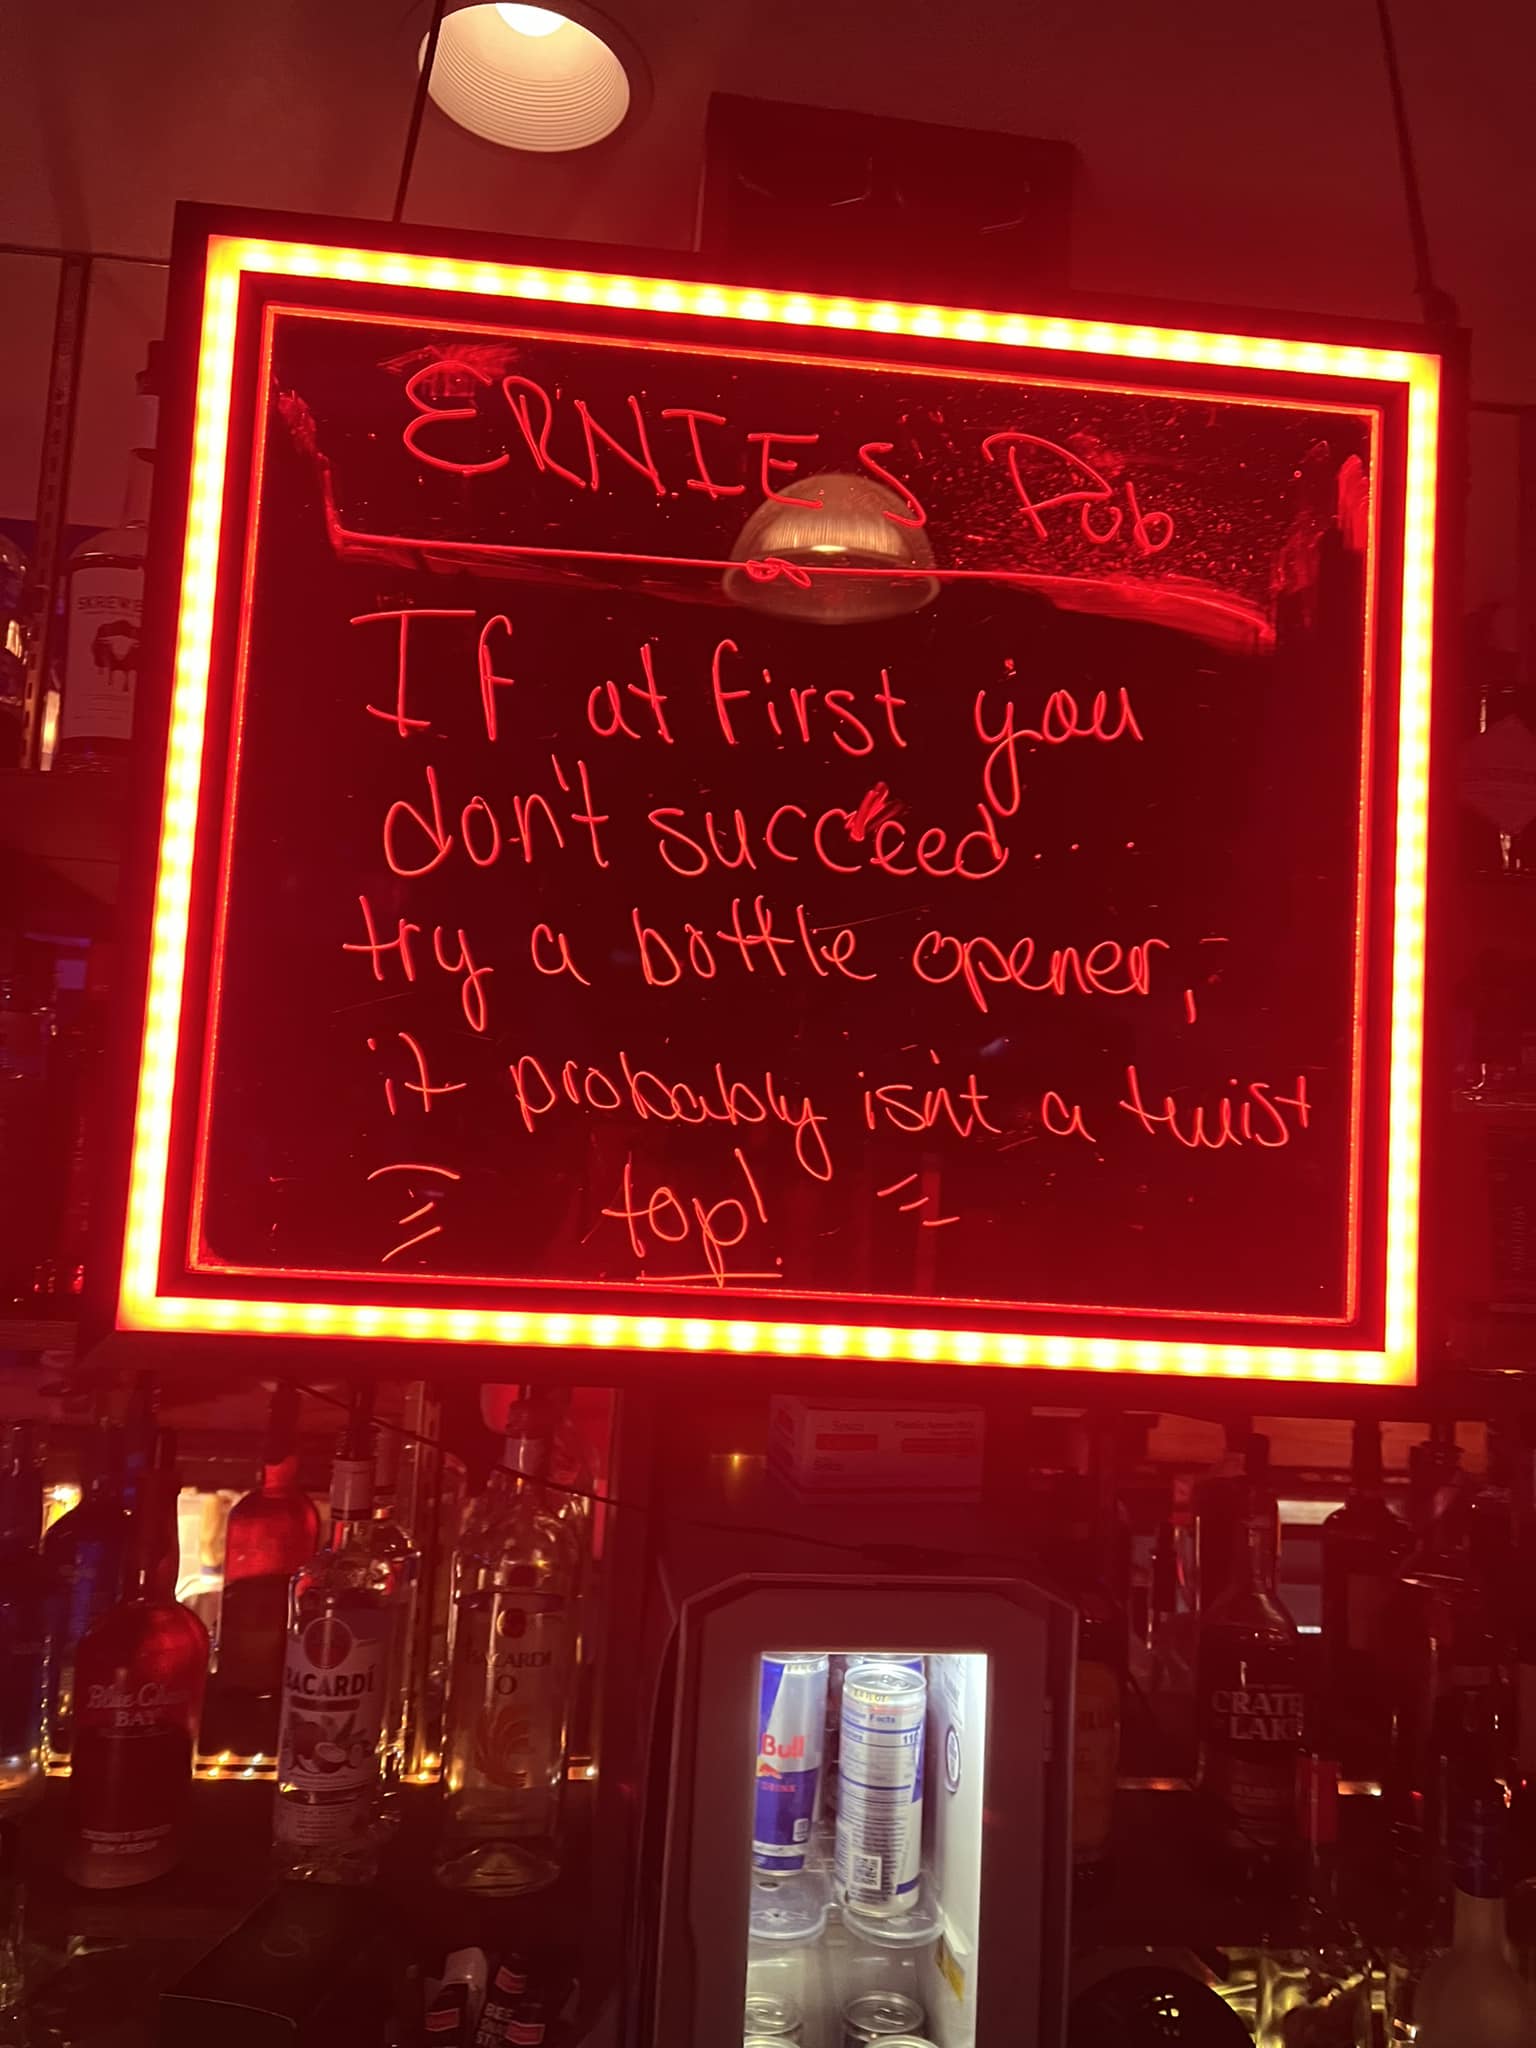 ERNIE'S Pub
If at first you
don't succeed...
try a bottle opener,
it probably isn't a twist
top!
SKREW
Blue Cha
BAY
BACARDÍ
BACARDÍ
O
Bull
DRINK
Facts
110
CRATE
LAKE
BEE